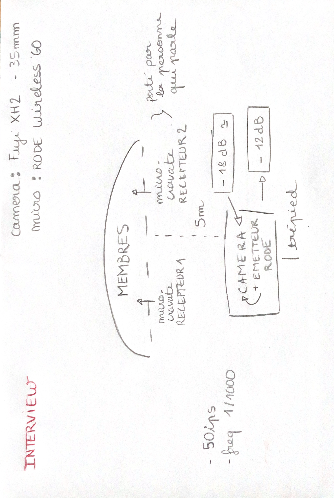 INTERVIEW
Camera : Fuji XH2 - 35mm
micro : RODE Wireless GO
MEMBRES
micro-
cravate
RECEPTEUR 1
micro-
cravate
RECEPTEUR 2
Porté par
la personne
qui parle
5m
- 50ips
- freq 1/1000
CAMERA
+ EMETTEUR
RODE
- 18 dB
- 12 dB
trépied